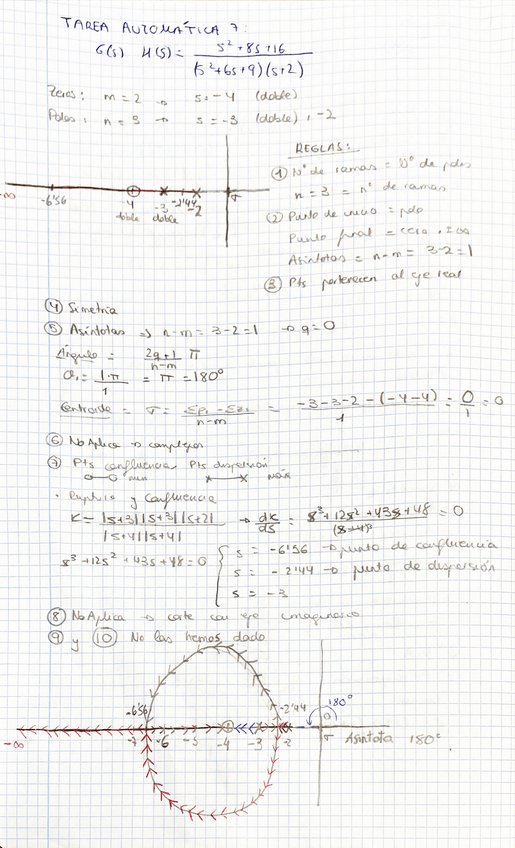 TAREA AUTOMÁTICA 7:
G(s) H(s) = s² + 8s + 16
(s² + 6s + 9)(s + 2)
Zeros: m = 2 → s = -4 (doble)
Polos: n = 3 → s = -3 (doble), -2
REGLAS:
① Nº de ramas = Nº de polos
n = 3 = nº de ramas
-∞ -6'56 -4 -3 -2'44 -2 σ
doble doble
② Punto de inicio = polo
Punto final = cero, ±∞
Asíntotas = n-m = 3-2 = 1
③ Pts pertenecen al eje real
④ Simetría
⑤ Asíntotas => n-m = 3-2 = 1 → q = 0
Ángulo = 2q+1 π
n-m
θ₁ = 1·π = π = 180°
1
Centroide = σ = Σpi - Σzi = -3-3-2-(-4-4) = 0 = 0
n-m 1 1
⑥ No Aplica → complejos
⑦ Pts confluencia, Pts dispersión
min máx
· Ruptura y Confluencia
K = |s+3||s+3||s+2| → dk = s³+12s²+43s+48 = 0
|s+4||s+4| ds
s³+12s²+43s+48 = 0
s = -6'56 → punto de confluencia
s = -2'44 → punto de dispersión
s = -3
⑧ No Aplica → corte con eje imaginario
⑨ y ⑩ No las hemos dado
-6'56 -2'44 180°
-∞ -7 -6 -5 -4 -3 -2 0 σ Asíntota 180°